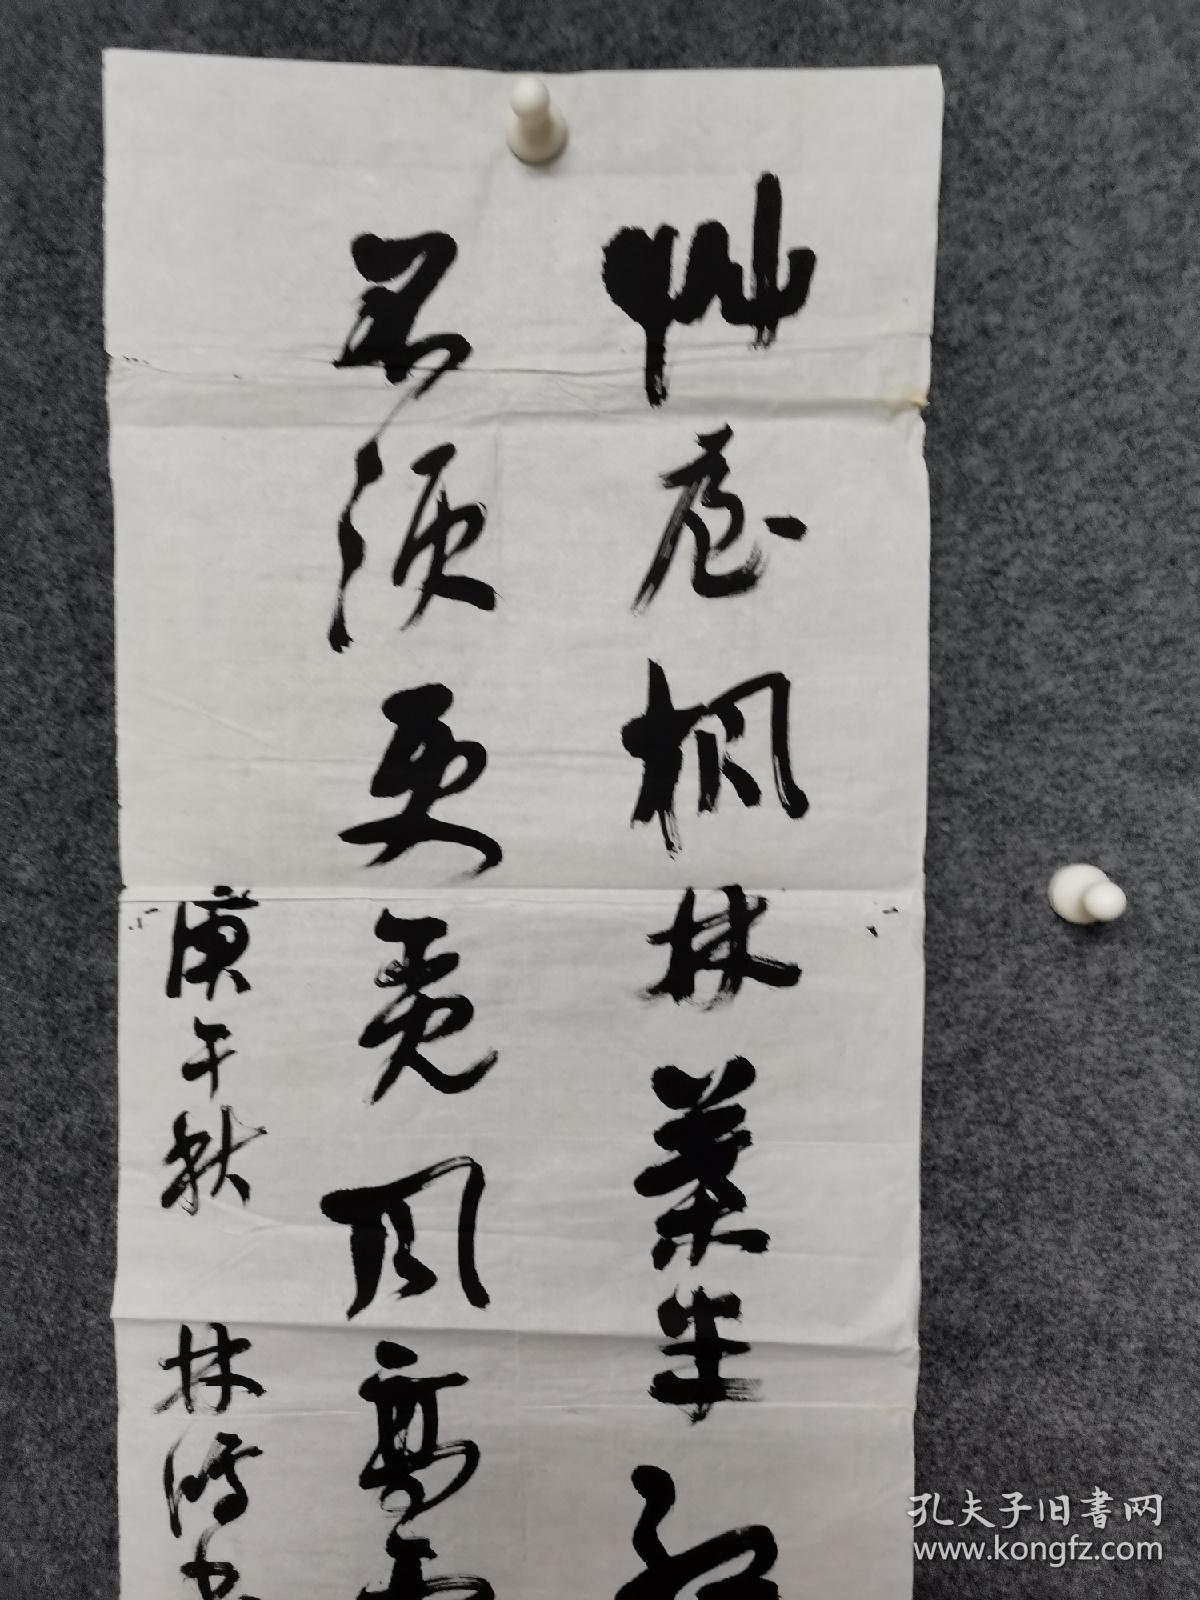 艸屋枫林叶半
不须更羡风高
庚午秋 林涛书
孔夫子旧书网
www.kongfz.com